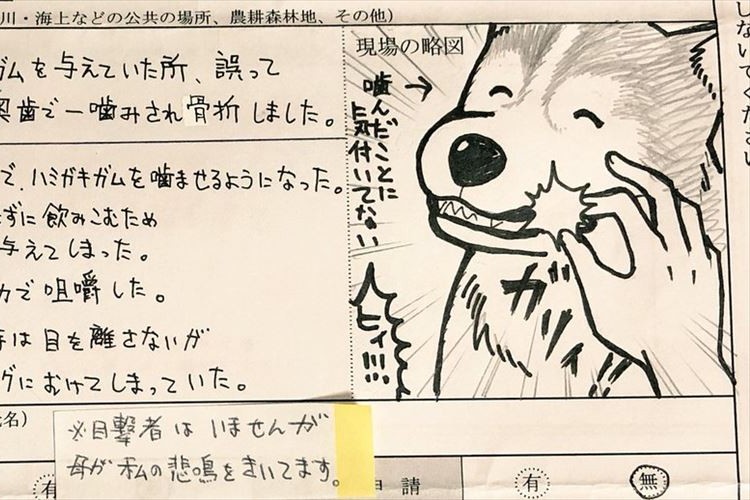 川・海上などの公共の場所、農耕森林地、その他）
ガムを与えていた所、誤って
奥歯で一噛みされ骨折しました。
で、ハミガキガムを噛ませるようになった。
ずに飲みこむため
与えてしまった。
カで咀嚼した。
は目を離さないが
グにむけてしまっていた。
現場の略図
噛んだことに
気付いてない
→
ガ
ヒィ!!!
名）
※目撃者はいませんが
母が私の悲鳴をきいてます。
有
申請
有
無
しないでください